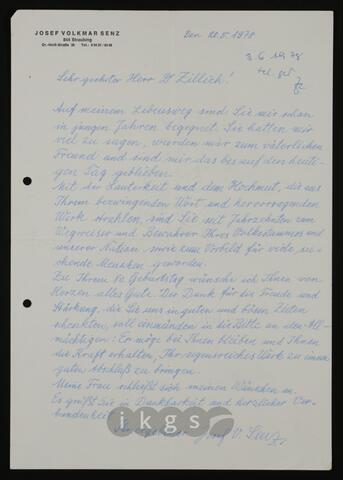 JOSEF VOLKMAR SENZ
844 Straubing
Den 22.5.1978
3 6 1978
tel. ged.
Sehr geehrter Herr Dr Zillich!
Auf meinem Lebensweg sind Sie mir schon
in jungen Jahren begegnet. Sie hatten mir
viel zu sagen, wurden mir zum väterlichen
Freund und sind mir das bis auf den heuti-
gen Tag geblieben.
Mit der Lauterkeit und dem Hochmut, die aus
Ihrem bezwingenden Wort und hervorragenden
Werk strahlen, sind Sie seit Jahrzehnten zum
Wegweiser und Bewahrer Ihres Volksstammes und
unserer Nation sowie zum Vorbild für viele, su-
chende Menschen geworden.
Zu Ihrem 80 Geburtstag wünsche ich Ihnen von
Herzen alles Gute. Der Dank für die Freude und
Stärkung, die Sie uns in guten und bösen Zeiten
schenkten, soll einmünden in die Bitte an den All-
mächtigen: Er möge bei Ihnen bleiben und Ihnen
die Kraft erhalten, Ihr segensreiches Werk zu einem
guten Abschluß zu bringen.
Meine Frau schließt sich meinen Wünschen an.
Es grüßt Sie in Dankbarkeit und herzlicher Ver-
bundenheit
Ihr ergebener Josef V. Senz
ikgs